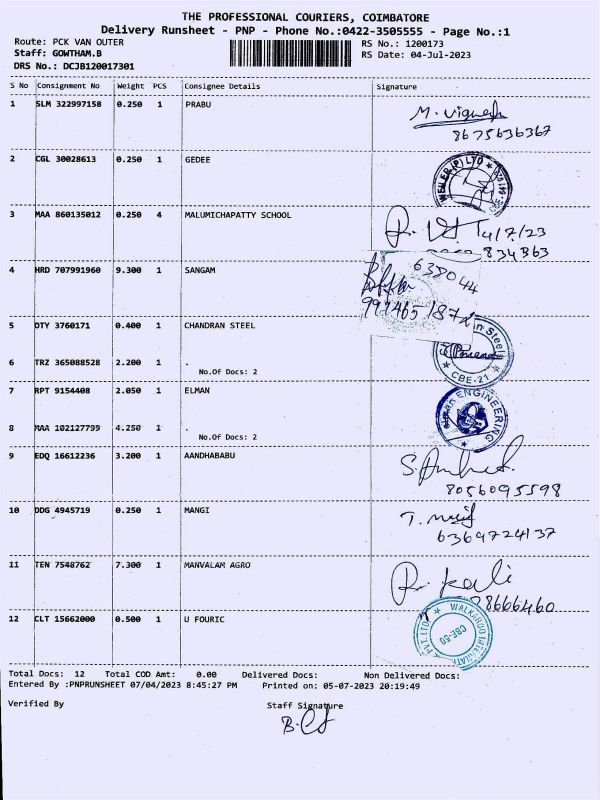 THE PROFESSIONAL COURIERS, COIMBATORE
Delivery Runsheet - PNP - Phone No.:0422-3505555 - Page No.:1
Route: PCK VAN OUTER RS No.: 1200173
Staff: GOWTHAM.B RS Date: 04-Jul-2023
DRS No.: DCJB120017301
S No Consignment No Weight PCS Consignee Details Signature
1 SLM 322997158 0.250 1 PRABU M. Vignesh
8675636367
2 CGL 30028613 0.250 1 GEDEE
3 MAA 860135012 0.250 4 MALUMICHAPATTY SCHOOL 14/7/23
834363
4 HRD 707991960 9.300 1 SANGAM 638044
5 DTY 3760171 0.400 1 CHANDRAN STEEL
Steel
CBE-21
6 TRZ 365088528 2.200 1 .
No.Of Docs: 2
7 RPT 9154408 2.050 1 ELMAN
ENGINEERING
8 MAA 102127799 4.250 1 .
No.Of Docs: 2
9 EDQ 16612236 3.200 1 AANDHABABU
8056095598
10 DDG 4945719 0.250 1 MANGI
6369724137
11 TEN 7548762 7.300 1 MANVALAM AGRO R. Kali
28666460
12 CLT 15662000 0.500 1 U FOURIC
CBE-50
PVT. LTD
Total Docs: 12 Total COD Amt: 0.00 Delivered Docs: Non Delivered Docs:
Entered By :PNPRUNSHEET 07/04/2023 8:45:27 PM Printed on: 05-07-2023 20:19:49
Verified By Staff Signature